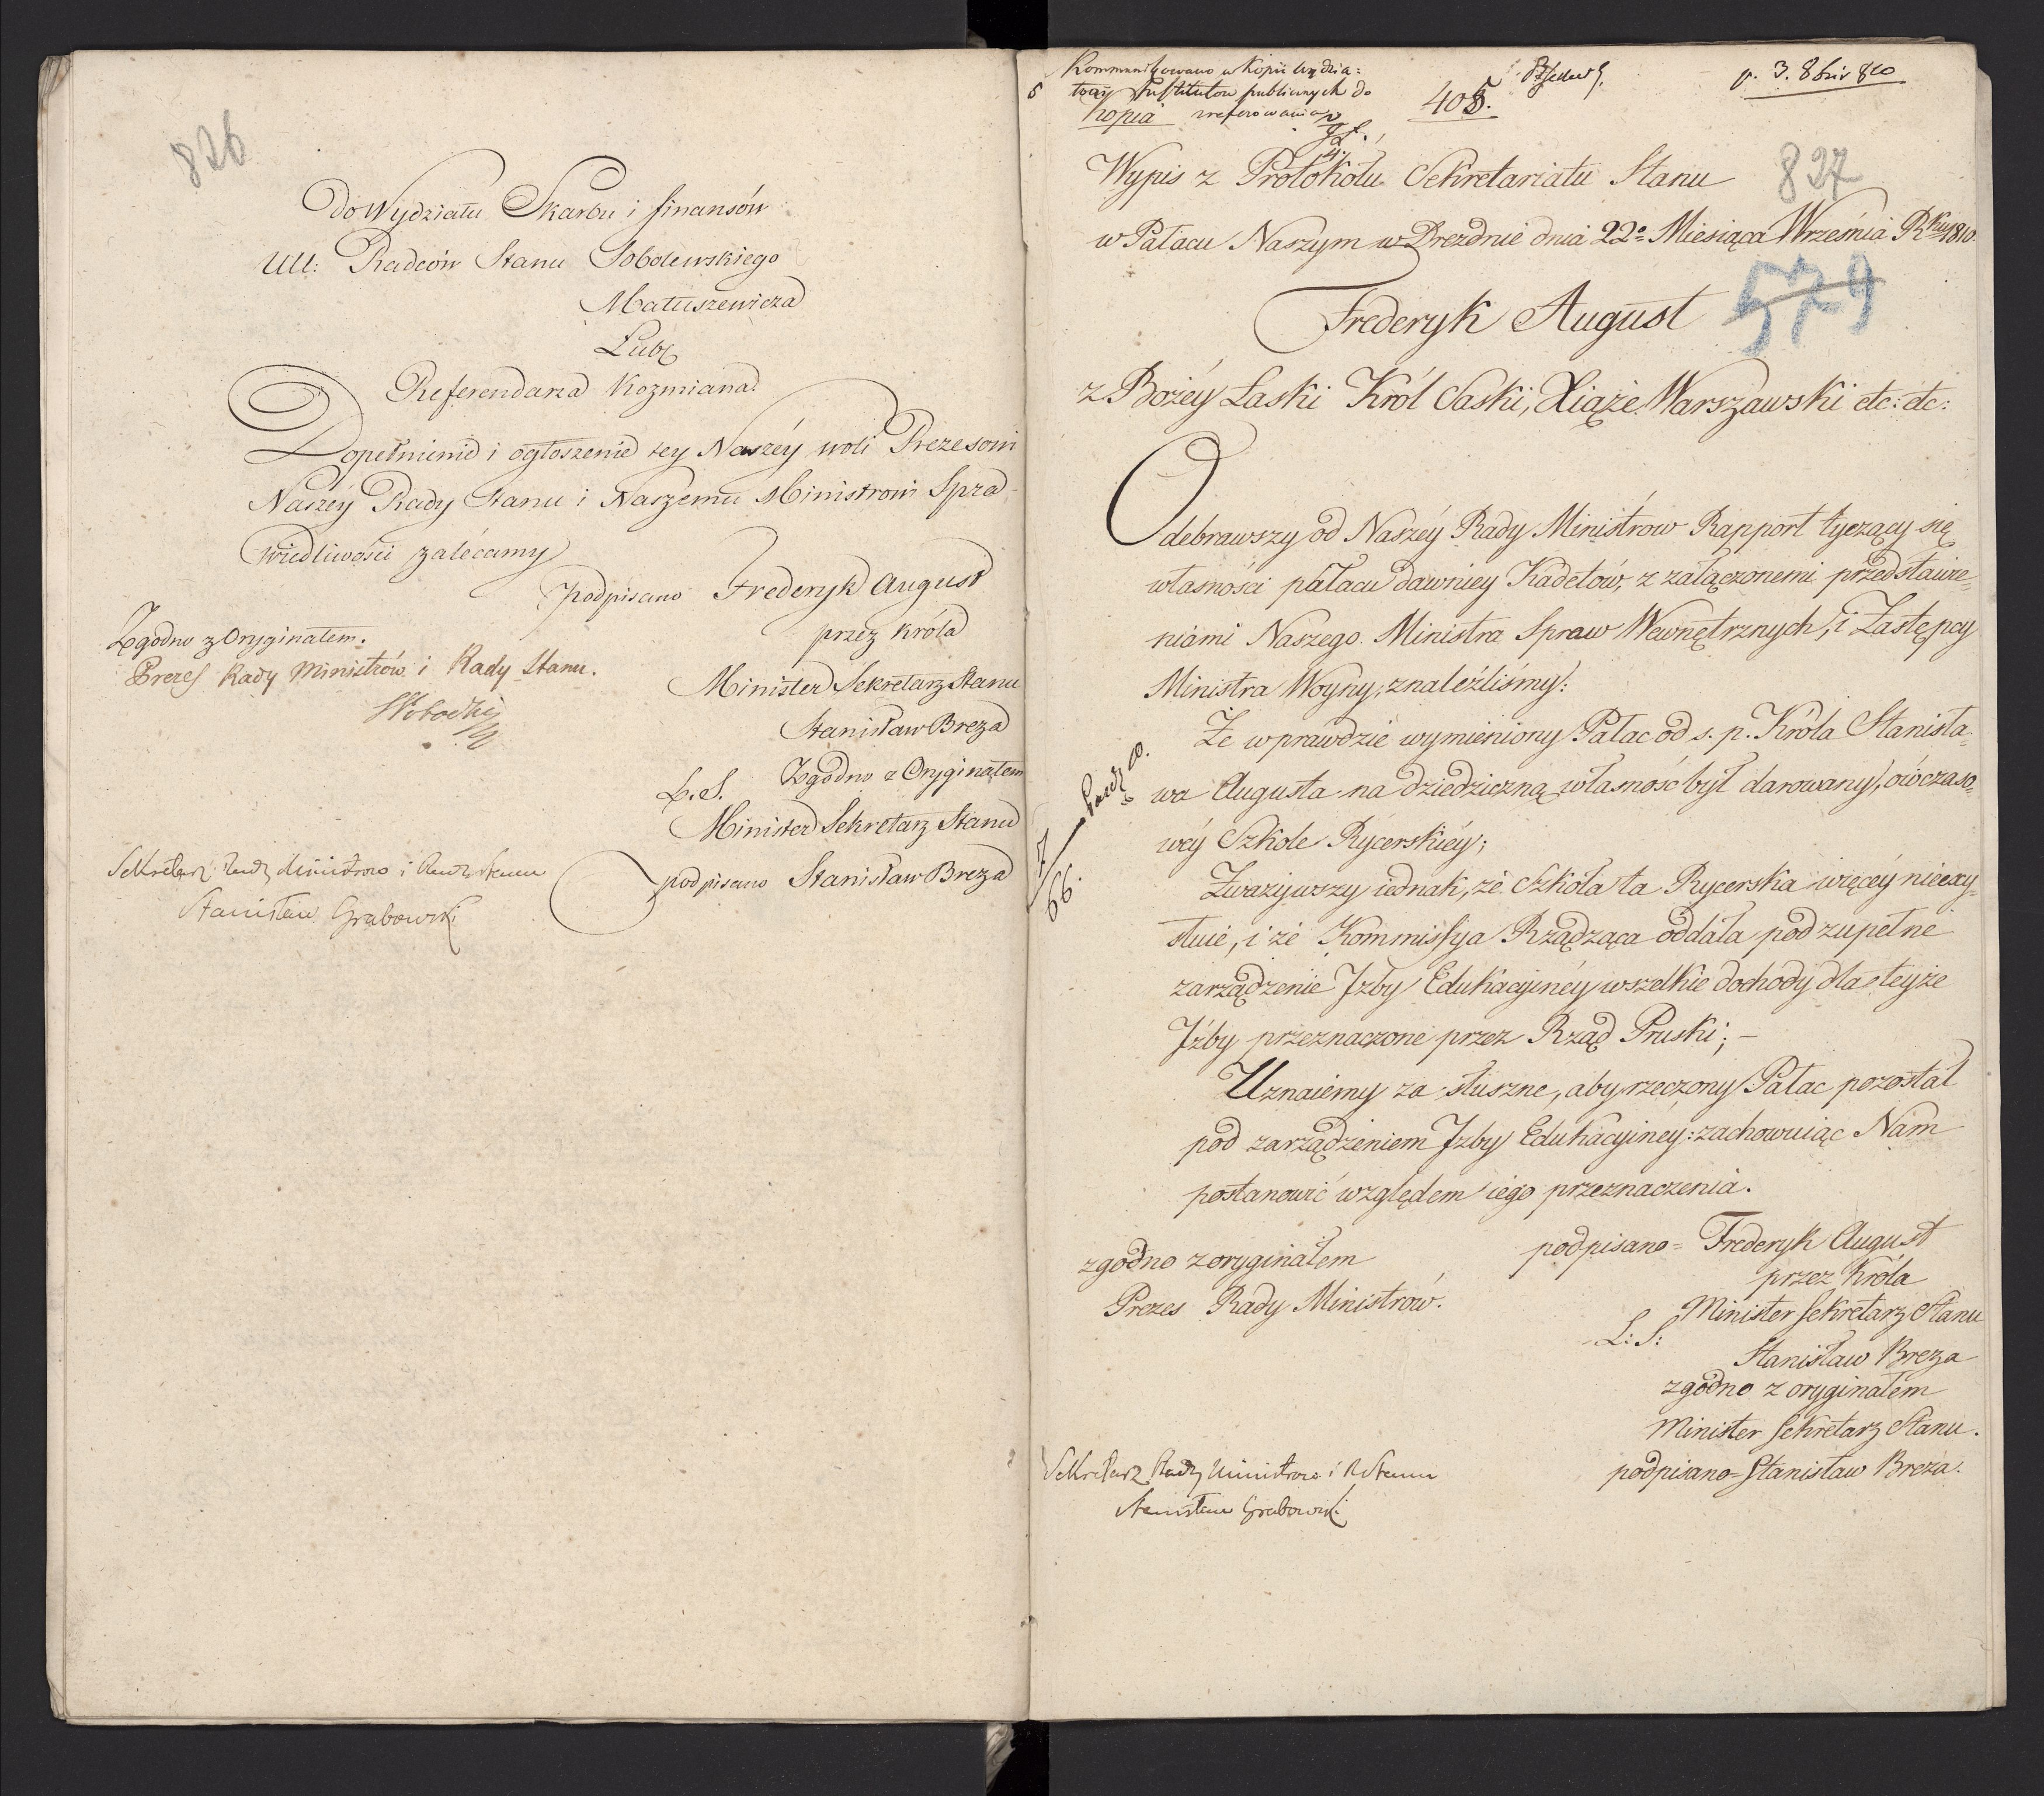 826
do Wydziału Skarbu i finansów
UU: Radców Stanu Sobolewskiego
Matuszewicza
Lub
Referendarza Kozmiana
Dopełnienie i ogłoszenie tey Naszéy woli Prezesowi
Naszéy Rady Stanu i Naszemu Ministrowi Spra-
wiedliwości zalécamy
podpisano Frederyk August
przez króla
Minister Sekretarz Stanu
Stanisław Breza
L. S. Zgodno z Oryginałem
Minister Sekretarz Stanu
podpisano Stanisław Breza
Zgodno z Oryginałem.
Prezes Rady Ministrów i Rady Stanu.
Sekretarz Rady Ministrow i Rady Stanu
Stanisław Grabowski
Kommunikowano w Kopii
Institutow publicznych do
kopia
405.
p. 3. 8bris 810
Wypis z Protokołu Sekretariatu Stanu
827
w Pałacu Naszym w Dreznie dnia 22o Miesiąca Września Rku 1810.
579
Frederyk August
z Bożéy Łaski Król Saski, Xiąże Warszawski etc: etc:
Odebrawszy od Naszéy Rady Ministrow Rapport tyczący się
własności pałacu dawniey Kadetów, z załączonemi przedstawie=
niami Naszego Ministra Spraw Wewnętrznych, i Zastępcy
Ministra Woyny, znaleźliśmy:
Że wprawdzie wymieniony Pałac od s. p. Króla Stanisła=
wa Augusta na dziedziczną własność był darowany, ówczaso=
wéy Szkole Rycerskiéy;
Zważywszy iednak, że Szkoła ta Rycerska więcéy nieexy=
stuie, i że Kommissya Rządząca oddała pod zupełne
zarządzenie Izby Edukacyinéy wszelkie dochody dla teyże
Izby przeznaczone przez Rząd Pruski; –
Uznaiemy za słuszne, aby rzeczony Pałac pozostał
pod zarządzeniem Izby Edukacyiney: zachowuiąc Nam
postanowić względem iego przeznaczenia.
podpisano= Frederyk August
przez Króla
Minister Sekretarz Stanu
L: S:
Stanisław Breza
zgodno z oryginałem
Minister Sekretarz Stanu.
podpisano= Stanisław Breza.
zgodno z oryginałem
Prezes Rady Ministrów.
Sekretarz Rady Ministrow i R Stanu
Stanisław Grabowski
66.